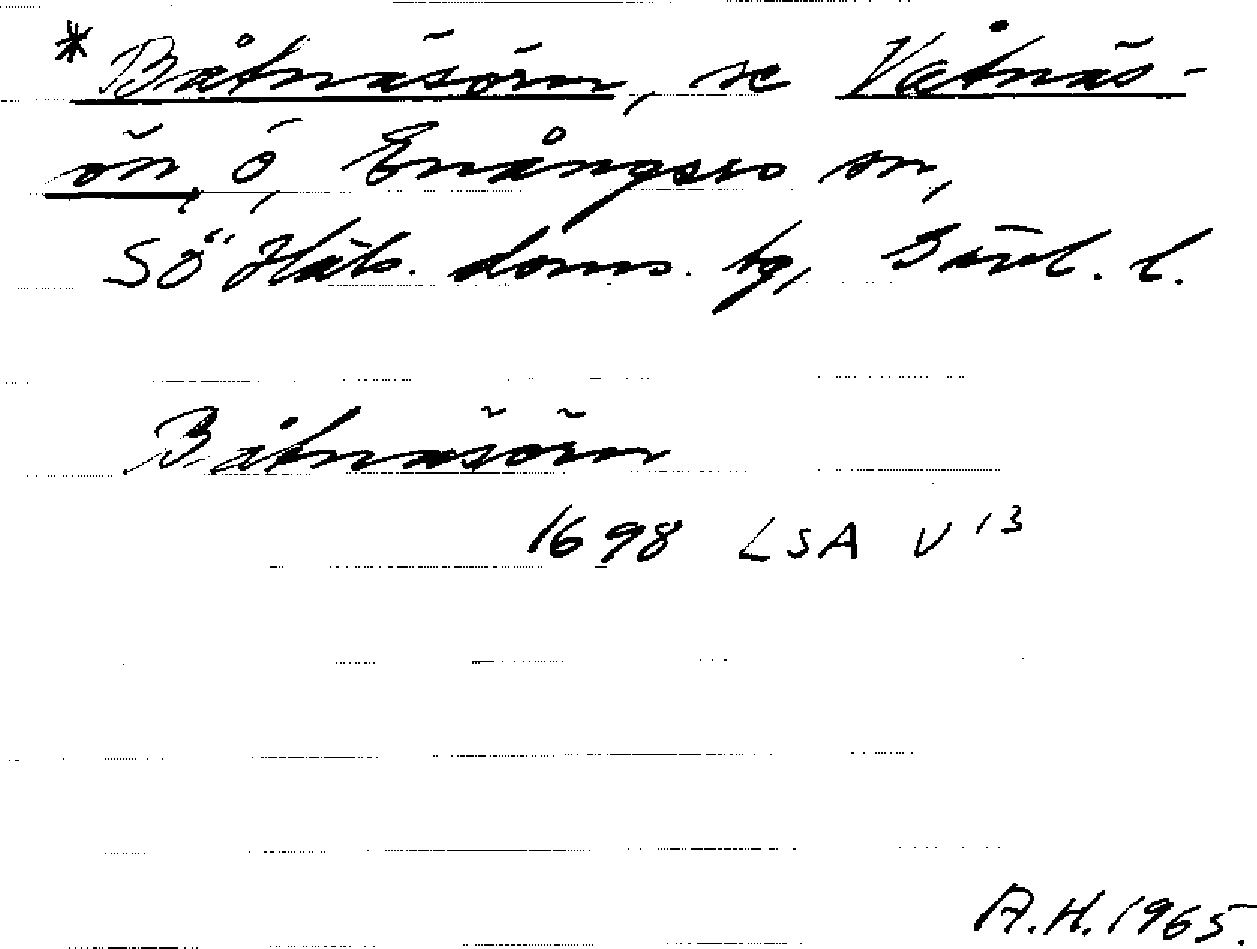 * Båtnäsörn, se Våtnäs-
ön, ö, Enångers sn,
Sö Häls. doms. tg, Gävl. l.
Båtnäsörn
1698 LSA V 13
A.H. 1965.